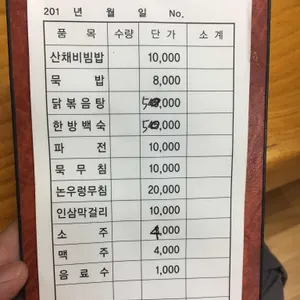 201 년 월 일 No.
품 목 수량 단 가 소 계
산채비빔밥 10,000
묵 밥 8,000
닭볶음탕 50,000
한방백숙 50,000
파 전 10,000
묵 무 침 10,000
논우렁무침 20,000
인삼막걸리 10,000
소 주 4,000
맥 주 4,000
음 료 수 1,000